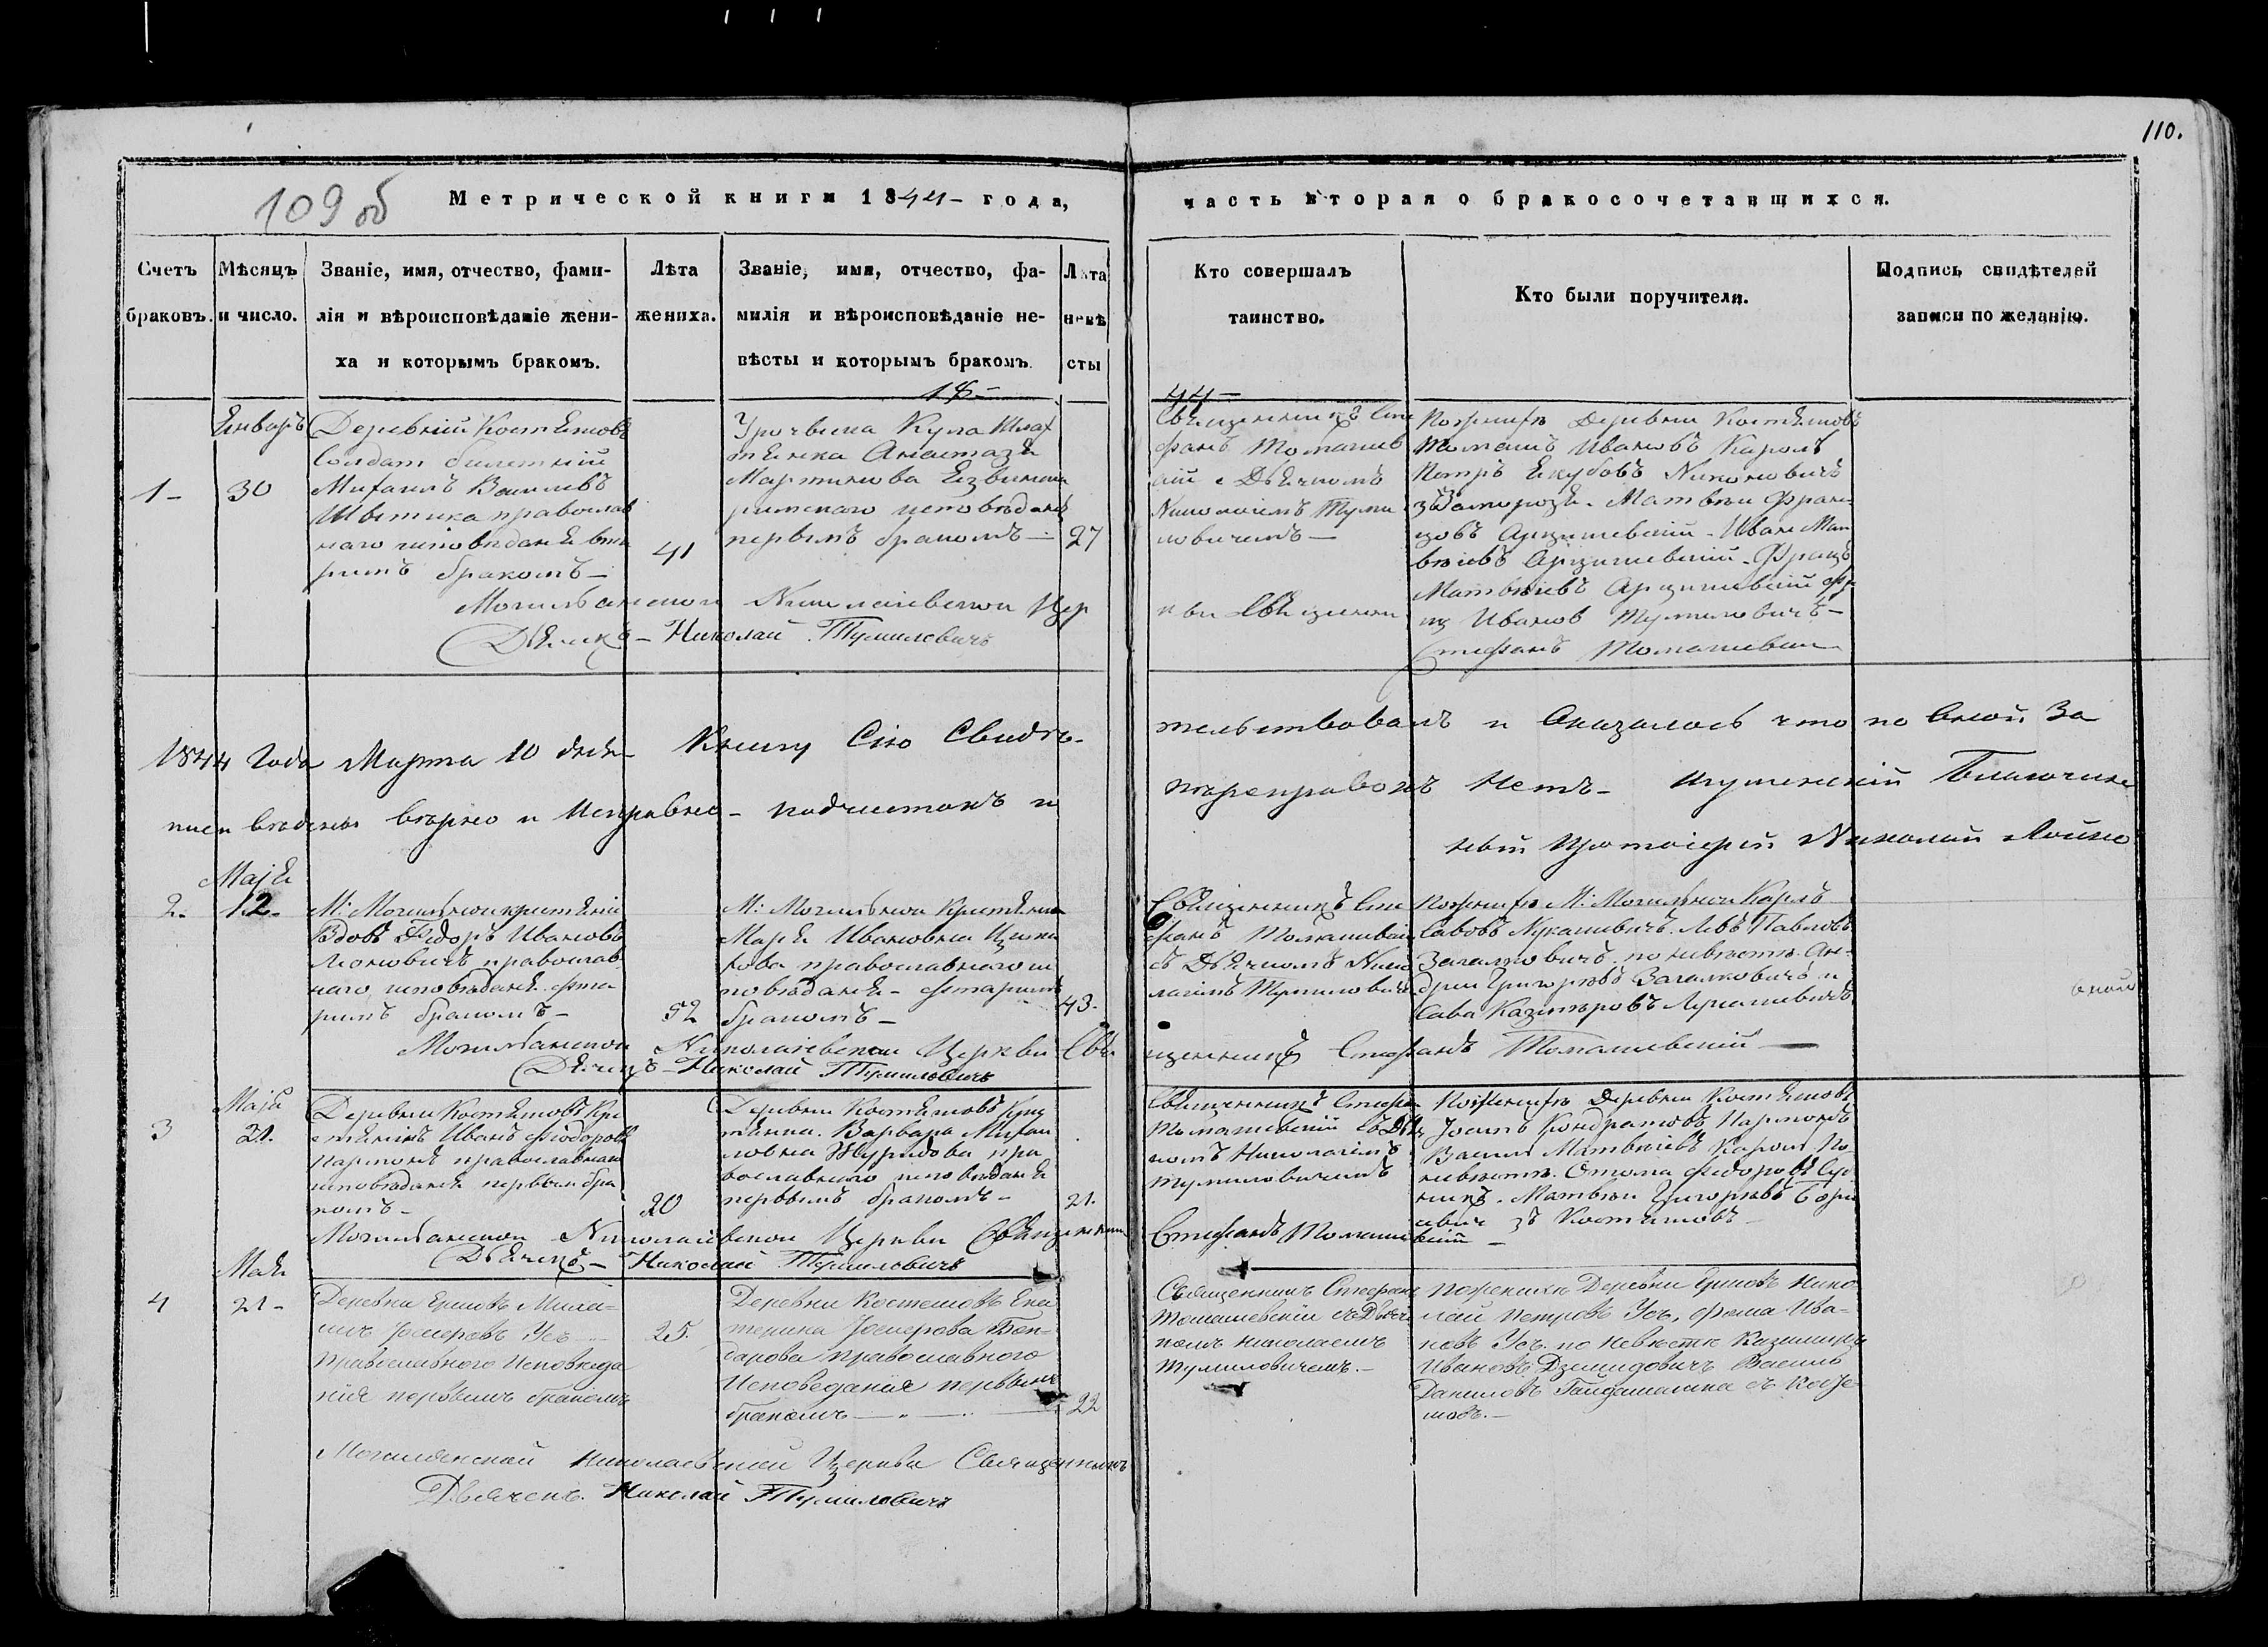 110.
109 об
Метрической книги 1844 - года,
часть вторая о бракосочетавшихся.
Счетъ браковъ.
Мѣсяцъ и число.
Званіе, имя, отчество, фами-
лія и вѣроисповѣданіе жени-
ха и которымъ бракомъ.
Лѣта
жениха.
Званіе, имя, отчество, фа-
милія и вѣроисповѣданіе не-
вѣсты и которымъ бракомъ.
Лѣта
невѣ
сты
Кто совершалъ
таинство.
Кто были поручители.
Подпись свидѣтелей
записи по желанію.
18-
44-
Январъ
1-
30
Деревній Костяшовъ
Солдат билетній
Михаилъ Василевъ
православ
наго исповѣданя вто
римъ бракомъ-
41
Анастазя
Мартинова
римскаго исповѣданя
первимъ бракомъ-
27
Священникъ Сте
фанъ Томашев
скій с Дьячкомъ
Николаемъ Туми
ловичемъ-
По жениху Деревни Костяшовъ
Томашъ Ивановъ Кароль
Петръ Якубовъ
Матвеи Фран
цовъ Иванъ Мат
веіевъ Францъ
Матвѣевъ
Ивановъ Тумиловичъ-
Могилянской Николаевской Цер
кви Священни
Стефанъ Томашевски
Дьячекъ- Николай Тумиловичъ
1844 Года Марта 10 дня- Книгу Сію Свидѣ-
тельствовалъ и Оказалось что по Оной За
писи ведены вѣрно и Исправно- подчистокъ и
переправокъ Нетъ- Игуменскій Благочин
ный Протоіерей Николай
Маія
2.
12-
М: Могильной крестянін
Вдовъ Федоръ Ивановъ
православ
наго исповѣданя фто
римъ бракомъ-
52
М: Могильной Крестянка
Маря Ивановна
кова православнаго ис
поведаня- фторимъ
бракомъ-
43-
Священникъ Сте
фанъ Томашевскій
съ Дьячкомъ Нико
лаемъ Тумиловичемъ
По жениху М: Могильной Карлъ
Савовъ Лукашевичъ. Левъ Павловъ
по невѣсте Ан-
дрей Григоревъ и
Сава Казимѣровъ Лукашевичъ
Могилянской Николаевской Церкви Свя
щенникъ Стефанъ Томашевскій
Дьячекъ- Николай Тумиловичъ
Маія
3
21.
Деревни Костяшовъ Кре
стянінъ Иванъ Федоровъ
православнаго
исповѣданя первым бра
комъ-
20
Деревни Костяшовъ Крес
тянка. Варвара Михаи
ловна пра
вославнаго исповѣданя
первымъ бракомъ-
21.
Священникъ Стефан
Томашевскій съ Дья
комъ Николаемъ
Тумиловичемъ
По жениху Деревни Костяшовъ
Іосипъ Кондратовъ
Василь Матвѣевъ Кароль По
невѣсте. Федоровъ
Матвеи Григоревъ
зъ Костяшовъ-
Могилянской Николаевской Церкви Священник
Стефанъ Томашевскій-
Дьячекъ- Николай Тумиловичъ
Мая
4
21-
Деревни Ершовъ Миха-
илъ Іосифовъ Усъ
православнаго Исповѣда
нія первымъ бракомъ
25.
Деревни Костешовъ Ека
терина Іосифова Бон-
дарова православного
Исповеданія первымъ
бракомъ
22
Священникъ Стефанъ
Томашевскій съ Дьяч
комъ Николаемъ
Тумиловичемъ.-
По жениху Деревни Ершовъ Нико
лай Петровъ Усъ, Фома Ива-
новъ Усъ. по Невѣсте Казимиръ
Ивановъ Дземидовичъ Василь
Даниловъ съ Косте
шовъ.-
Могилянской Николаевской Церкви Священникъ
Дьячекъ. Николай Тумиловичъ